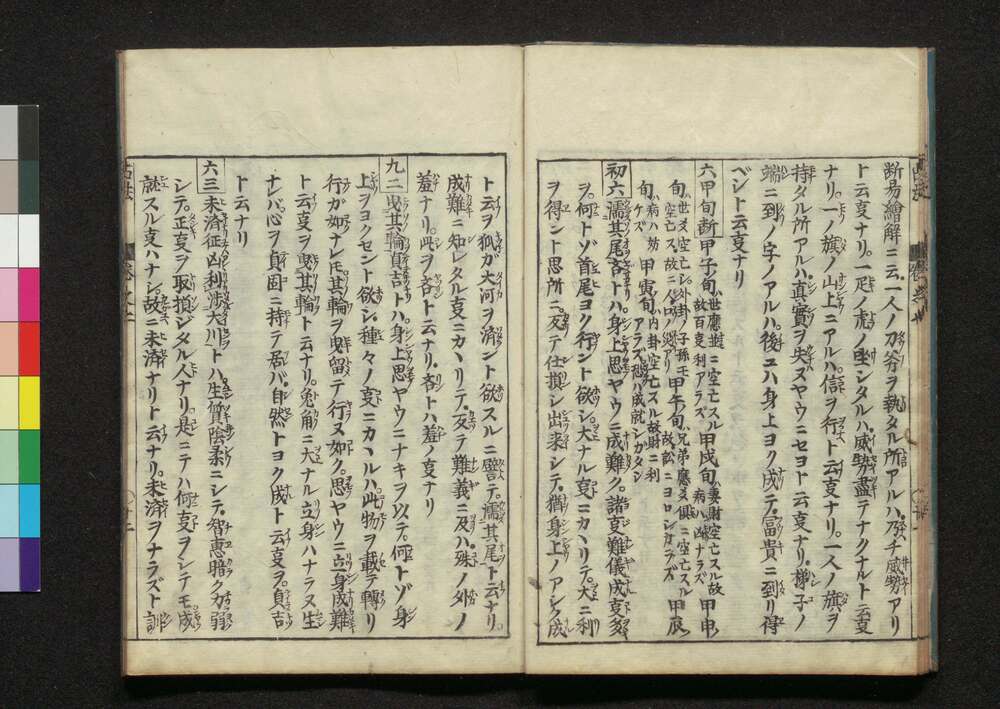 断易繪解ニ云一人ノ刀斧ヲ執タル所アルハ乃チ威勢アリ
ト云叓ナリ一疋ノ虎ノ坐シタルハ威勢盡テナクナルト云叓
ナリ一ノ旗ノ山上ニアルハ信ヲ行ト云叓ナリ一人ノ旗ヲ
持タル所アルハ真實ヲ失ヌヤウニセヨト云叓ナリ梯子ノ
端ニ到ノ字ノアルハ後ニハ身上ヨク成テ冨貴ニ到リ得
ベシト云叓ナリ
六甲旬断 甲子旬 世應共ニ空亡スル故百叓利アラズ 甲戌旬 妻財空亡スル故病ハ凶ナラズ 甲申
旬 世爻空亡シ外卦ノ子孫モ空亡ス故ニ人口ノ災アリ 甲午旬 兄弟應爻倶ニ空亡スル故訟ニヨロシカラズ 甲辰
旬 病ハ効ケズ 甲寅旬 内卦空亡スル故財ニ利アラズ恐ハ成就シガタシ
初六濡其尾吝トハ身上思ヤウニ成難ク諸叓難儀成叓多
ヲ何トゾ首尾ヨク行ント欲シ大ナル叓ニカヽリテ大ニ利
ヲ得ント思所ニ反テ仕損シ出来シテ猶身上ノアシク成
ト云ヲ狐ガ大河ヲ済ント欲スルニ譬テ濡其尾ト云ナリ
成難ニ知レタル叓ニカヽリテ反テ難義ニ及ハ殊ノ外ノ
羞ナリ此ヲ吝ト云ナリ吝トハ羞ノ叓ナリ
九二曳其輪貞吉トハ身上思ヤウニナキヲ以テ何トゾ身
上ヲヨクセント欲シ種々ノ叓ニカヽルハ此物ヲ載テ轉リ
行ガ如ナレドモ其輪ヲ曳留テ行ヌ如ク思ヤウニ立身成難
ト云叓ヲ曳其輪ト云ナリ兎角ニ大ナル立身ハナラヌ生
ナレバ心ヲ貞固ニ持テ居バ自然トヨク成ト云叓ヲ貞吉
ト云ナリ
六三未済征凶利渉大川トハ生質陰柔ニシテ智恵暗ク力弱
シテ正叓ヲ取損ジタル人ナリ是ニテハ何叓ヲシテモ成
就スル叓ハナシ故ニ未済ナリト云ナリ未済ヲナラズト訓